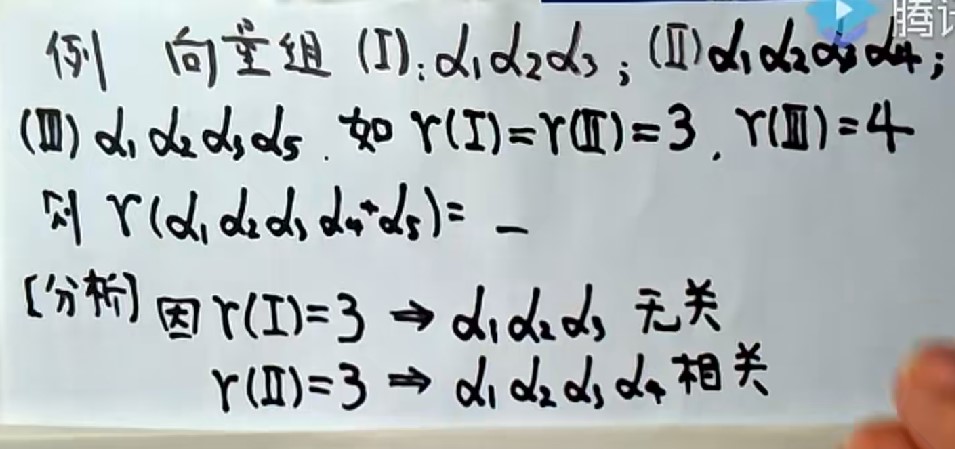 腾讯
例 向量组 (I): α₁ α₂ α₃ ; (II) α₁ α₂ α₃ α₄ ;
(III) α₁ α₂ α₃ α₅ . 如 r(I)=r(II)=3 , r(III)=4
则 r(α₁ α₂ α₃ α₄+α₅)= _
[分析] 因 r(I)=3 ⇒ α₁ α₂ α₃ 无关
r(II)=3 ⇒ α₁ α₂ α₃ α₄ 相关